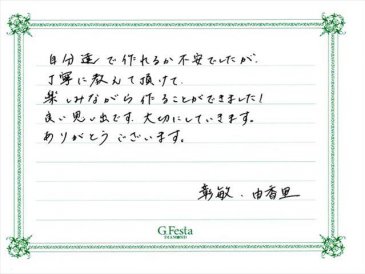 自分達で作れるか不安でしたが、
丁寧に教えて頂けて、
楽しみながら作ることができました!
良い思い出です。大切にしていきます。
ありがとうございます。
彰敏・由香里
G.Festa
DIAMOND